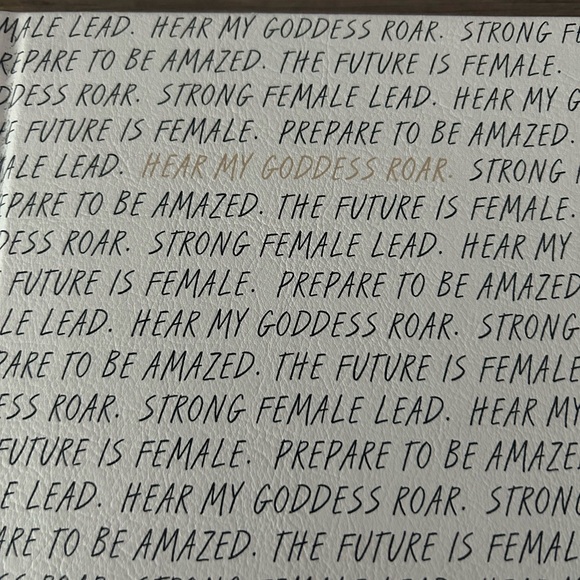 MALE LEAD. HEAR MY GODDESS ROAR. STRONG FE
REPARE TO BE AMAZED. THE FUTURE IS FEMALE.
DDESS ROAR. STRONG FEMALE LEAD. HEAR MY G
E FUTURE IS FEMALE. PREPARE TO BE AMAZED.
ALE LEAD. HEAR MY GODDESS ROAR. STRONG F
EPARE TO BE AMAZED. THE FUTURE IS FEMALE.
DESS ROAR. STRONG FEMALE LEAD. HEAR MY
FUTURE IS FEMALE. PREPARE TO BE AMAZED
LE LEAD. HEAR MY GODDESS ROAR. STRONG
PARE TO BE AMAZED. THE FUTURE IS FEMALE
ESS ROAR. STRONG FEMALE LEAD. HEAR MY
FUTURE IS FEMALE. PREPARE TO BE AMAZE
E LEAD. HEAR MY GODDESS ROAR. STRONG
ARE TO BE AMAZED. THE FUTURE IS FEMAL